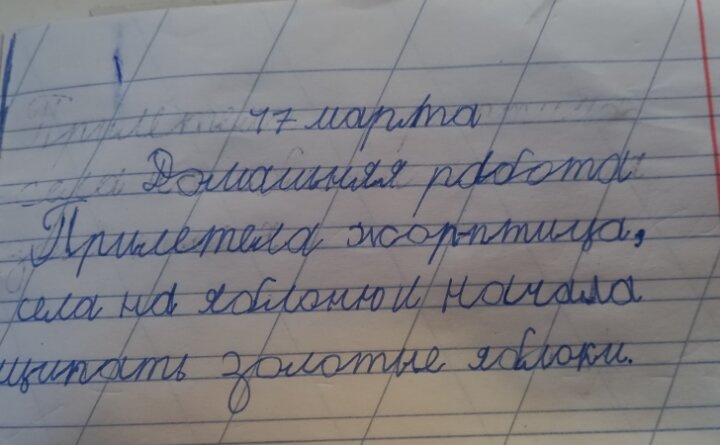 17 марта
Домашняя работа
Прилетела жор-птица,
села на яблоню и начала
щипать золотые яблоки.